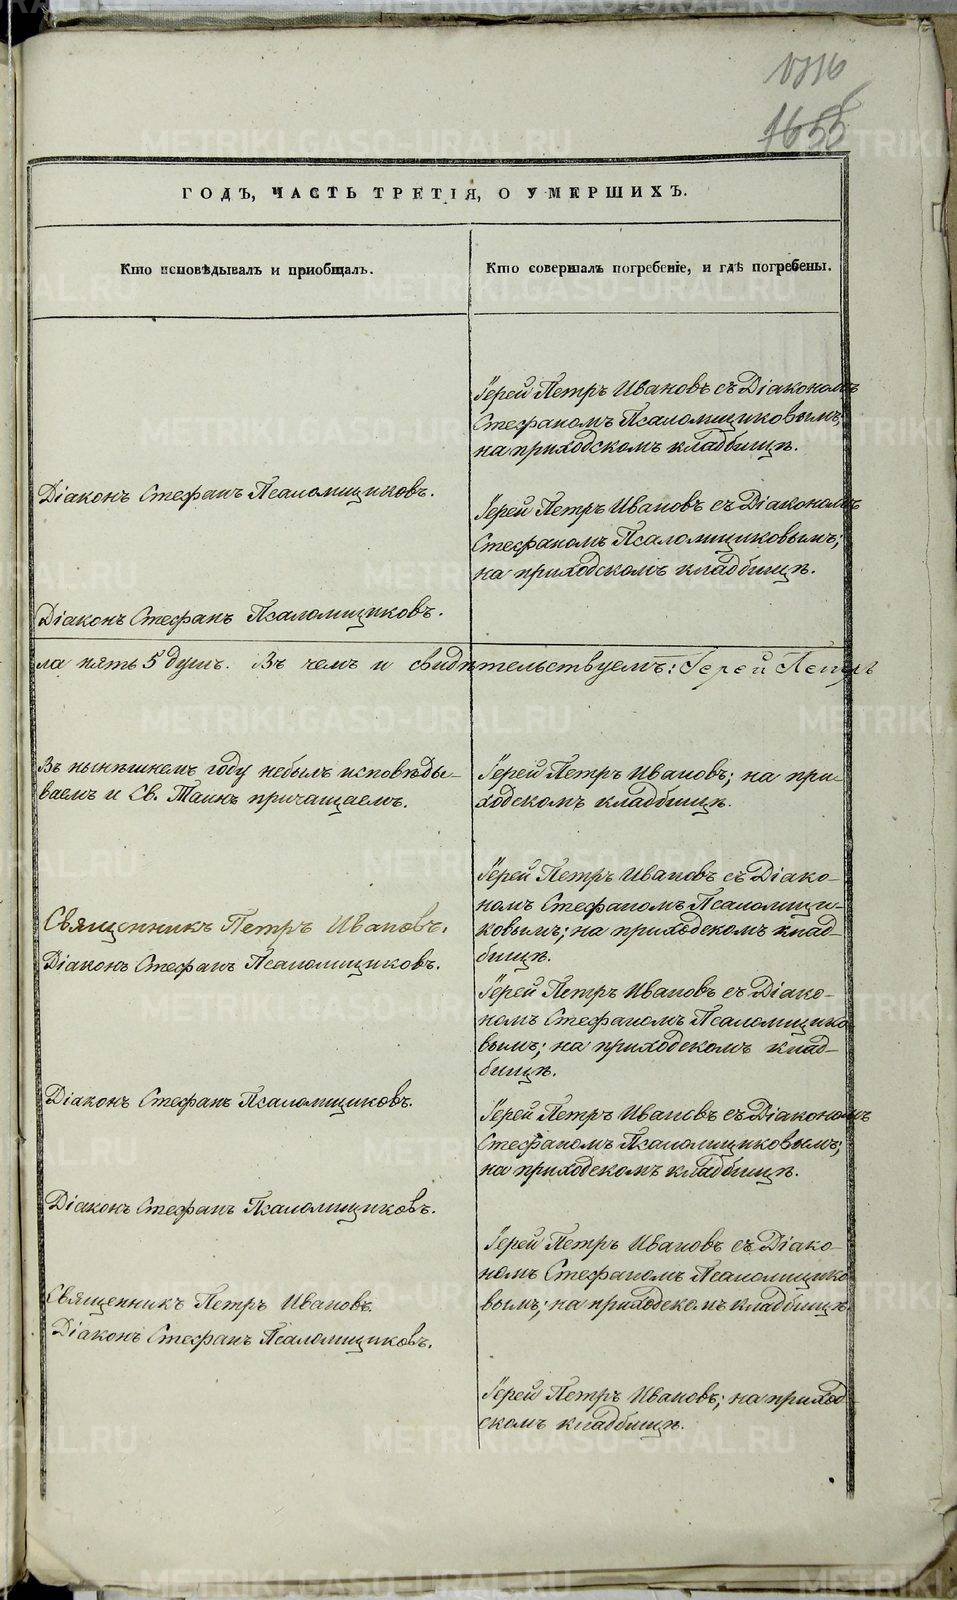 1316
1655
ГОДЪ, ЧАСТЬ ТРЕТІЯ, О УМЕРШИХЪ.
Кто исповѣдывалъ и пріобщалъ.
Кто совершалъ погребеніе, и гдѣ погребены.
Іерей Петръ Ивановъ съ Діакономъ
Стефаномъ Псаломщиковымъ;
на приходскомъ кладбищѣ.
Діаконъ Стефанъ Псаломщиковъ.
Іерей Петръ Ивановъ съ Діакономъ
Стефаномъ Псаломщиковымъ;
на приходскомъ кладбищѣ.
Діаконъ Стефанъ Псаломщиковъ.
ла пять 5 душъ. Въ чемъ и свидѣтельствуемъ: Іерей Петръ
Въ нынѣшнемъ году небылъ исповѣды-
ваемъ и Св. Таинъ причащаемъ.
Іерей Петръ Ивановъ; на при-
ходскомъ кладбищѣ.
Священникъ Петръ Ивановъ.
Діаконъ Стефанъ Псаломщиковъ.
Іерей Петръ Ивановъ съ Діако-
номъ Стефаномъ Псаломщи-
ковымъ; на приходскомъ клад-
бищѣ.
Іерей Петръ Ивановъ съ Діако-
номъ Стефаномъ Псаломщико-
вымъ; на приходскомъ клад-
бищѣ.
Діаконъ Стефанъ Псаломщиковъ.
Іерей Петръ Ивановъ съ Діакономъ
Стефаномъ Псаломщиковымъ;
на приходскомъ кладбищѣ.
Діаконъ Стефанъ Псаломщиковъ.
Іерей Петръ Ивановъ съ Діако-
номъ Стефаномъ Псаломщико-
вымъ; на приходскомъ кладбищѣ.
Священникъ Петръ Ивановъ.
Діаконъ Стефанъ Псаломщиковъ.
Іерей Петръ Ивановъ; на приход-
скомъ кладбищѣ.
METRIKI.GASO-URAL.RU